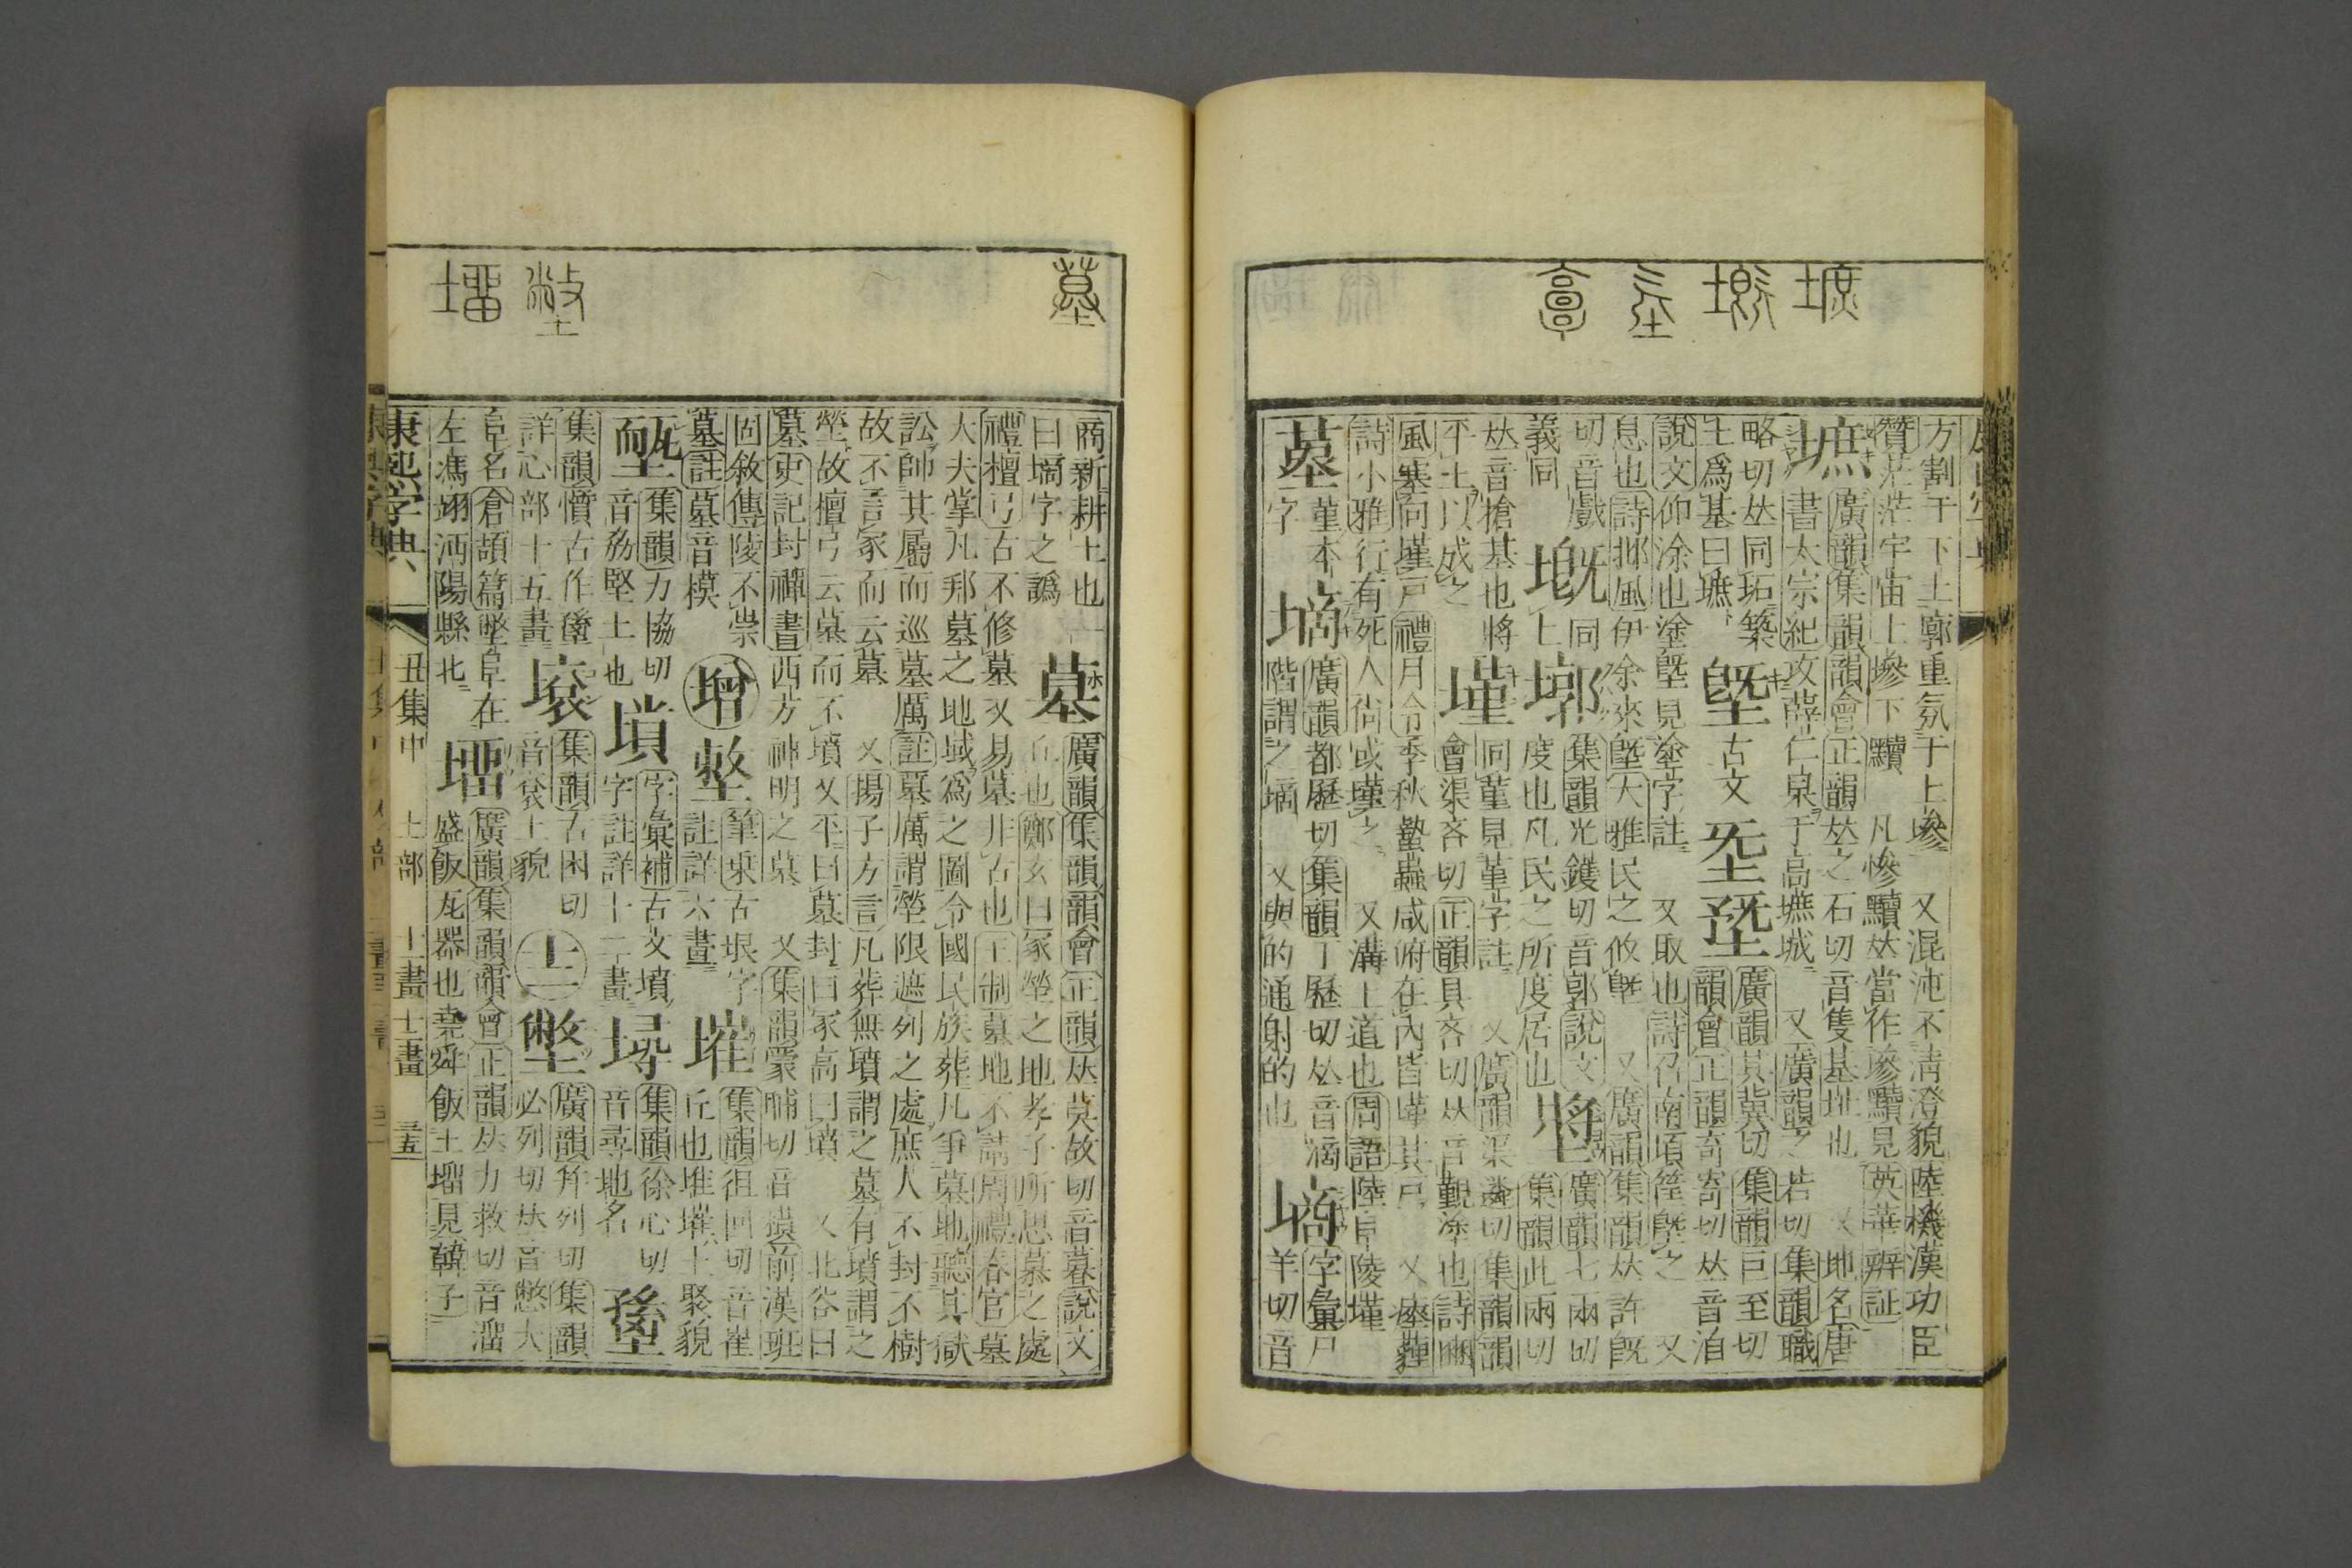 方割于下土廓重氛于上墋　又混沌不淸澄貌陸機漢功臣
贊茫茫宇宙上墋下黷　凡慘黷𠀤當作墋黷見英華辨証
墌
廣韻集韻韻會正韻𠀤之石切音隻基址也　又地名唐
書太宗紀攻薛仁杲于高墌城　又廣韻之若切集韻職
略切𠀤同坧築
土爲基曰墌
墍
古文
㙇
廣韻其冀切集韻巨至切
韻會正韻奇寄切𠀤音洎
說文仰涂也塗墍見塗字註　又取也詩召南頃筐墍之　又
息也詩邶風伊余來墍大雅民之攸墍　又廣韻集韻𠀤許旣
切音戲
義同
塈
同
上
墎
集韻光鑊切音郭說文
度也凡民之所度居也
墏
廣韻七兩切
集韻此兩切
𠀤音搶基也將
平土以成之
墐
同堇見堇字註　又廣韻渠遴切集韻韻
會渠吝切正韻具吝切𠀤音覲塗也詩豳
風塞向墐戸禮月令季秋蟄蟲咸俯在內皆墐其戸　又瘞薶
詩小雅行有死人尙或墐之　又溝上道也周語陸阜陵墐
墓
菫本
字
墑
廣韻都歷切集韻丁歷切𠀤音滴
階謂之墑　又與的通射的也
墒
字彙尸
羊切音
商新耕土也一
曰墑字之譌
墓
廣韻集韻韻會正韻𠀤莫故切音暮說文
丘也鄭玄曰冢塋之地孝子所思慕之處
禮檀弓古不修墓又易墓非古也王制墓地不請周禮春官墓
大夫掌凡邦墓之地域爲之圖令國民族葬凡爭墓地聽其獄
訟帥其屬而巡墓厲註墓厲謂塋限遮列之處庶人不封不樹
故不言冢而云墓　又揚子方言凡葬無墳謂之墓有墳謂之
塋故檀弓云墓而不墳又平曰墓封曰冢高曰墳　又北谷曰
墓史記封禪書西方神明之墓　又集韻蒙晡切音模前漢班
固敘傳陵不崇
墓註墓音模
增
墪
筆乗古垠字
註詳六畫
墔
集韻徂回切音崔
丘也堆墔土聚貌
集韻力協切
音務堅土也
塻
字彙補古文墳
字註詳十二畫
㙷
集韻徐心切
音尋地名
集韻憒古作
詳心部十五畫
㙥
集韻古困切
音袞土貌
土
廣韻幷列切集韻
必列切𠀤音憋大
阜名倉頡篇阜在
左馮翊沔陽縣北
塯
廣韻集韻韻會正韻𠀤力救切音溜
盛飯瓦器也堯舜飯土塯見韓子
康熙字典　丑集中　土部　十一畫　十二畫　三五